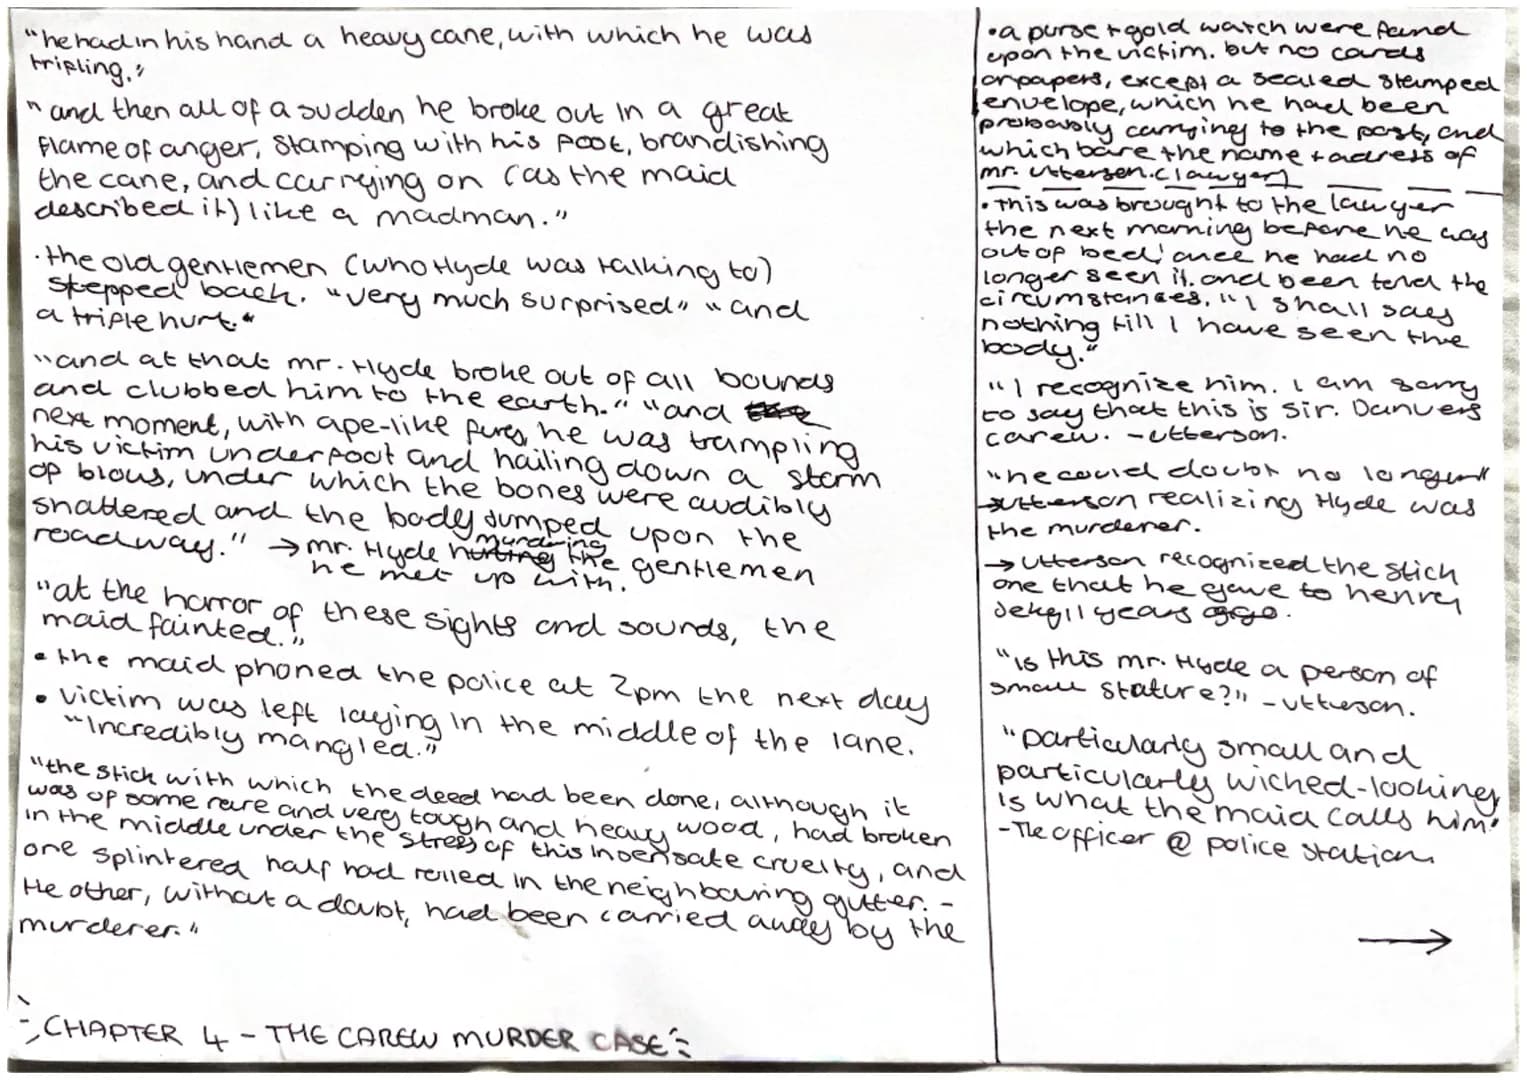 "he had in his hand a heavy cane, with which he was
trifling."
"and then all of a sudden he broke out in a great
flame of anger, stamping with his foot, brandishing
the cane, and carrying on (as the maid
described it) like a madman."
· the old gentlemen (who Hyde was talking to)
stepped back. "very much surprised" "and
a trifle hurt."
"and at that mr. Hyde broke out of all bounds
and clubbed him to the earth." "and
next moment, with ape-like fury, he was trampling
his victim underfoot and hailing down a storm
of blows, under which the bones were audibly
shattered and the body jumped upon the
roadway." → mr. Hyde murdering the gentlemen
he met up with.
"at the horror of these sights and sounds, the
maid fainted."
• the maid phoned the police at 2pm the next day
• victim was left laying in the middle of the lane.
"Incredibly mangled."
"the stick with which the deed had been done, although it
was of some rare and very tough and heavy wood, had broken
in the middle under the stress of this insensate cruelty, and
one splintered half had rolled in the neighbouring gutter. -
the other, without a doubt, had been carried away by the
murderer."
CHAPTER 4 - THE CAREW MURDER CASE
• a purse + gold watch were found
upon the victim. but no cards
or papers, except a sealed stamped
envelope, which he had been
probably carrying to the post, and
which bare the name + adress of
mr. Utterson. (lawyer)
• This was brought to the lawyer
the next morning before he was
out of bed; once he had no
longer seen it. and been told the
circumstances, "I shall say
nothing till I have seen the
body."
"I recognize him. I am sorry
to say that this is Sir. Danvers
carew. - Utterson.
"he could doubt no longer"
→ Utterson realizing Hyde was
the murderer.
→ Utterson recognized the stick
one that he gave to henry
Jekyll years ago.
"Is this mr. Hyde a person of
small stature?" - Utterson.
"Particularly small and
particularly wicked-looking,
is what the maid calls him."
- The officer @ police station
→